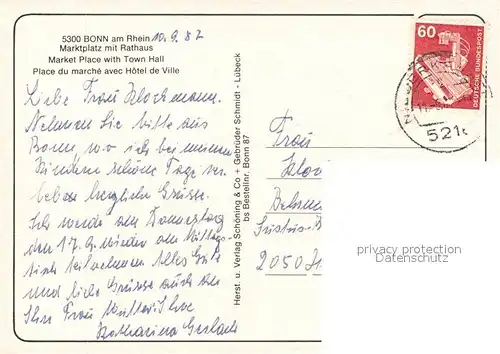 5300 BONN am Rhein 10.9.82
Marktplatz mit Rathaus
Market Place with Town Hall
Place du marché avec Hôtel de Ville
Liebe Frau Klockmann.
Nehmen Sie bitte aus
Bonn, wo ich bei meinen
Kindern schöne Tage ver
lebe herzliche Grüsse.
Ich werde am Donnerstag
den 17.9. wieder am Mittags-
tisch teilnehmen Alles Gute
und liebe Grüsse auch an
Ihre Frau Mutter Ihre
Katharina Gerlach
Herst. u. Verlag Schöning & Co + Gebrüder Schmidt - Lübeck
bs Bestellnr. Bonn 87
60
DEUTSCHE BUNDESPOST
521
Frau
Klo
Justus-B
2050
privacy protection
ansichtskarten-center.de